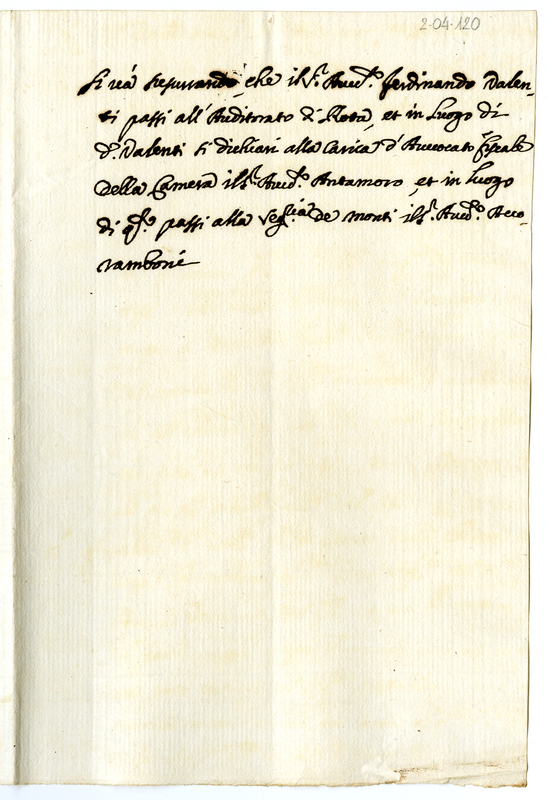 2-04-120
Si và susurrando che il S.r Avvd.o Ferdinando Valen-
ti passi all' Auditorato di Rota, et in luogo di
d.o Valenti si dichiari alla Carica d'Avvocato fiscale
della Camera il S.r Avvd.o Antamoro, et in luogo
di q.to passi alla Seg.ria de monti il S.r Avvd.o Acco-
ramboni